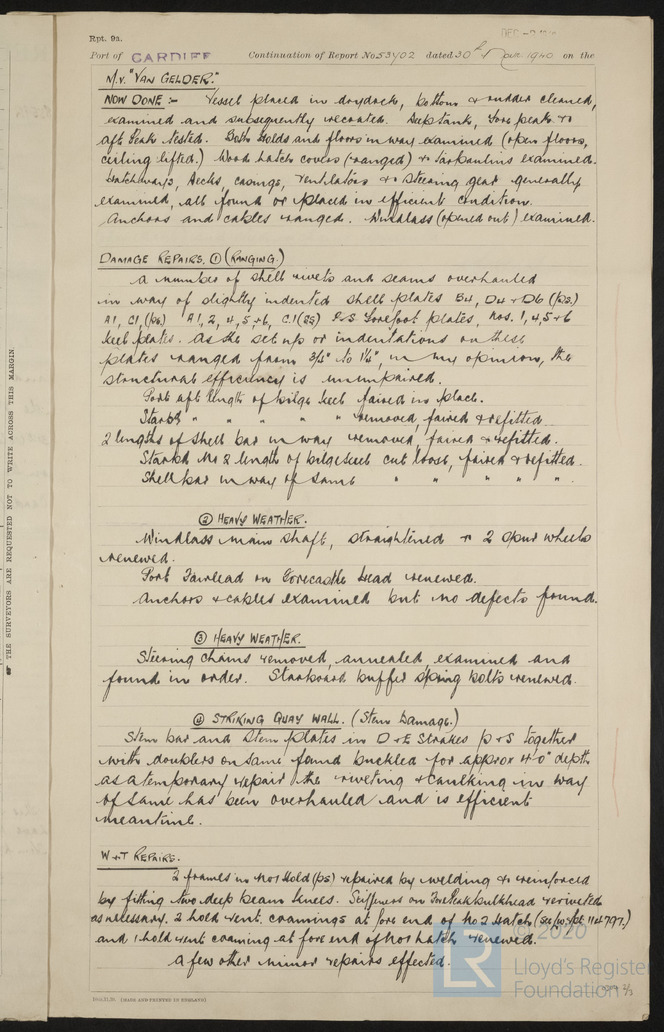 Rpt. 9a.
Port of CARDIFF Continuation of Report No. 53402 dated 30th 1940 on the
M.V. "VAN GELDER."
NOW DONE :- Vessel placed in drydock, bottom & rudder cleaned,
examined and subsequently recoated. Deeptank, fore peak &
aft peak tested. Both Holds and floors in way examined (open floors,
ceiling lifted.) Wood hatch covers (ranged) & tarpaulins examined.
Hatchways, decks, casings, ventilators & steering gear generally
examined, all found or placed in efficient condition.
Anchors and cables ranged. Windlass (opened out) examined.
DAMAGE REPAIRS. ① (RANGING.)
A number of shell rivets and seams overhauled
in way of slightly indented shell plates B4, D4 & D6 (ps.)
A1, C1, (ps.) A1, 2, 4, 5 & 6, C.1 (ss) P & S forefoot plates, nos. 1, 4, 5 & 6
keel plates. As the set up or indentations on these
plates ranged from 3/4" to 1 1/4", in my opinion, the
structural efficiency is unimpaired.
Port aft length of bilge keel faired in place.
Starbd " " " " " removed, faired & refitted.
2 lengths of shell bar in way removed, faired & refitted.
Starbd No 2 length of bilge keel cut loose, faired & refitted.
Shell bar in way of same " " " " "
② HEAVY WEATHER.
Windlass main shaft, straightened & 2 spur wheels
renewed.
Port Fairlead on Forecastle head renewed.
Anchors & cables examined but no defects found.
③ HEAVY WEATHER.
Steering chains removed, annealed, examined and
found in order. Starboard buffer spring bolts renewed.
④ STRIKING QUAY WALL. (Stem Damage.)
Stem bar and stem plates in D & E strakes P & S together
with doublers on same found buckled for approx 4'0" depth
as a temporary repair the riveting & caulking in way
of same has been overhauled and is efficient
meantime.
W & T REPAIRS.
2 frames in No 1 Hold (ps) repaired by welding & reinforced
by fitting two deep beam knees. Stiffeners on Fore Peak bulkhead reriveted
as necessary. 2 hold vent. coamings at fore end of No 2 hatch
and 1 hold vent coaming at fore end of No 1 hatch renewed.
A few other minor repairs effected.
THE SURVEYORS ARE REQUESTED NOT TO WRITE ACROSS THIS MARGIN.
(MADE AND PRINTED IN ENGLAND)
© 2020
LR
Lloyd's Register
Foundation